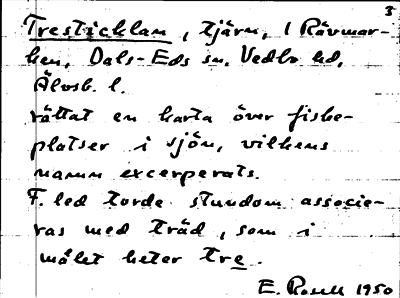 3
Tresticklan, tjärn, i Rävmar-
ken, Dals-Eds sn, Vedbo hd,
Älvsb. l.
rättat en karta över fiske-
platser i sjön, vilkens
namn excerperats.
F. led torde stundom associe-
ras med träd, som i
målet heter tre.
E. Rosell 1950